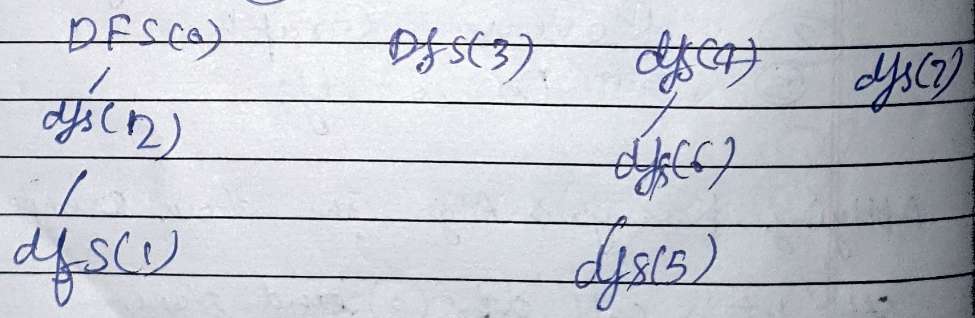 DFS(0) DfS(3) dfs(4) dfs(7)
dfs(2) dfs(6)
dfS(1) dfs(5)